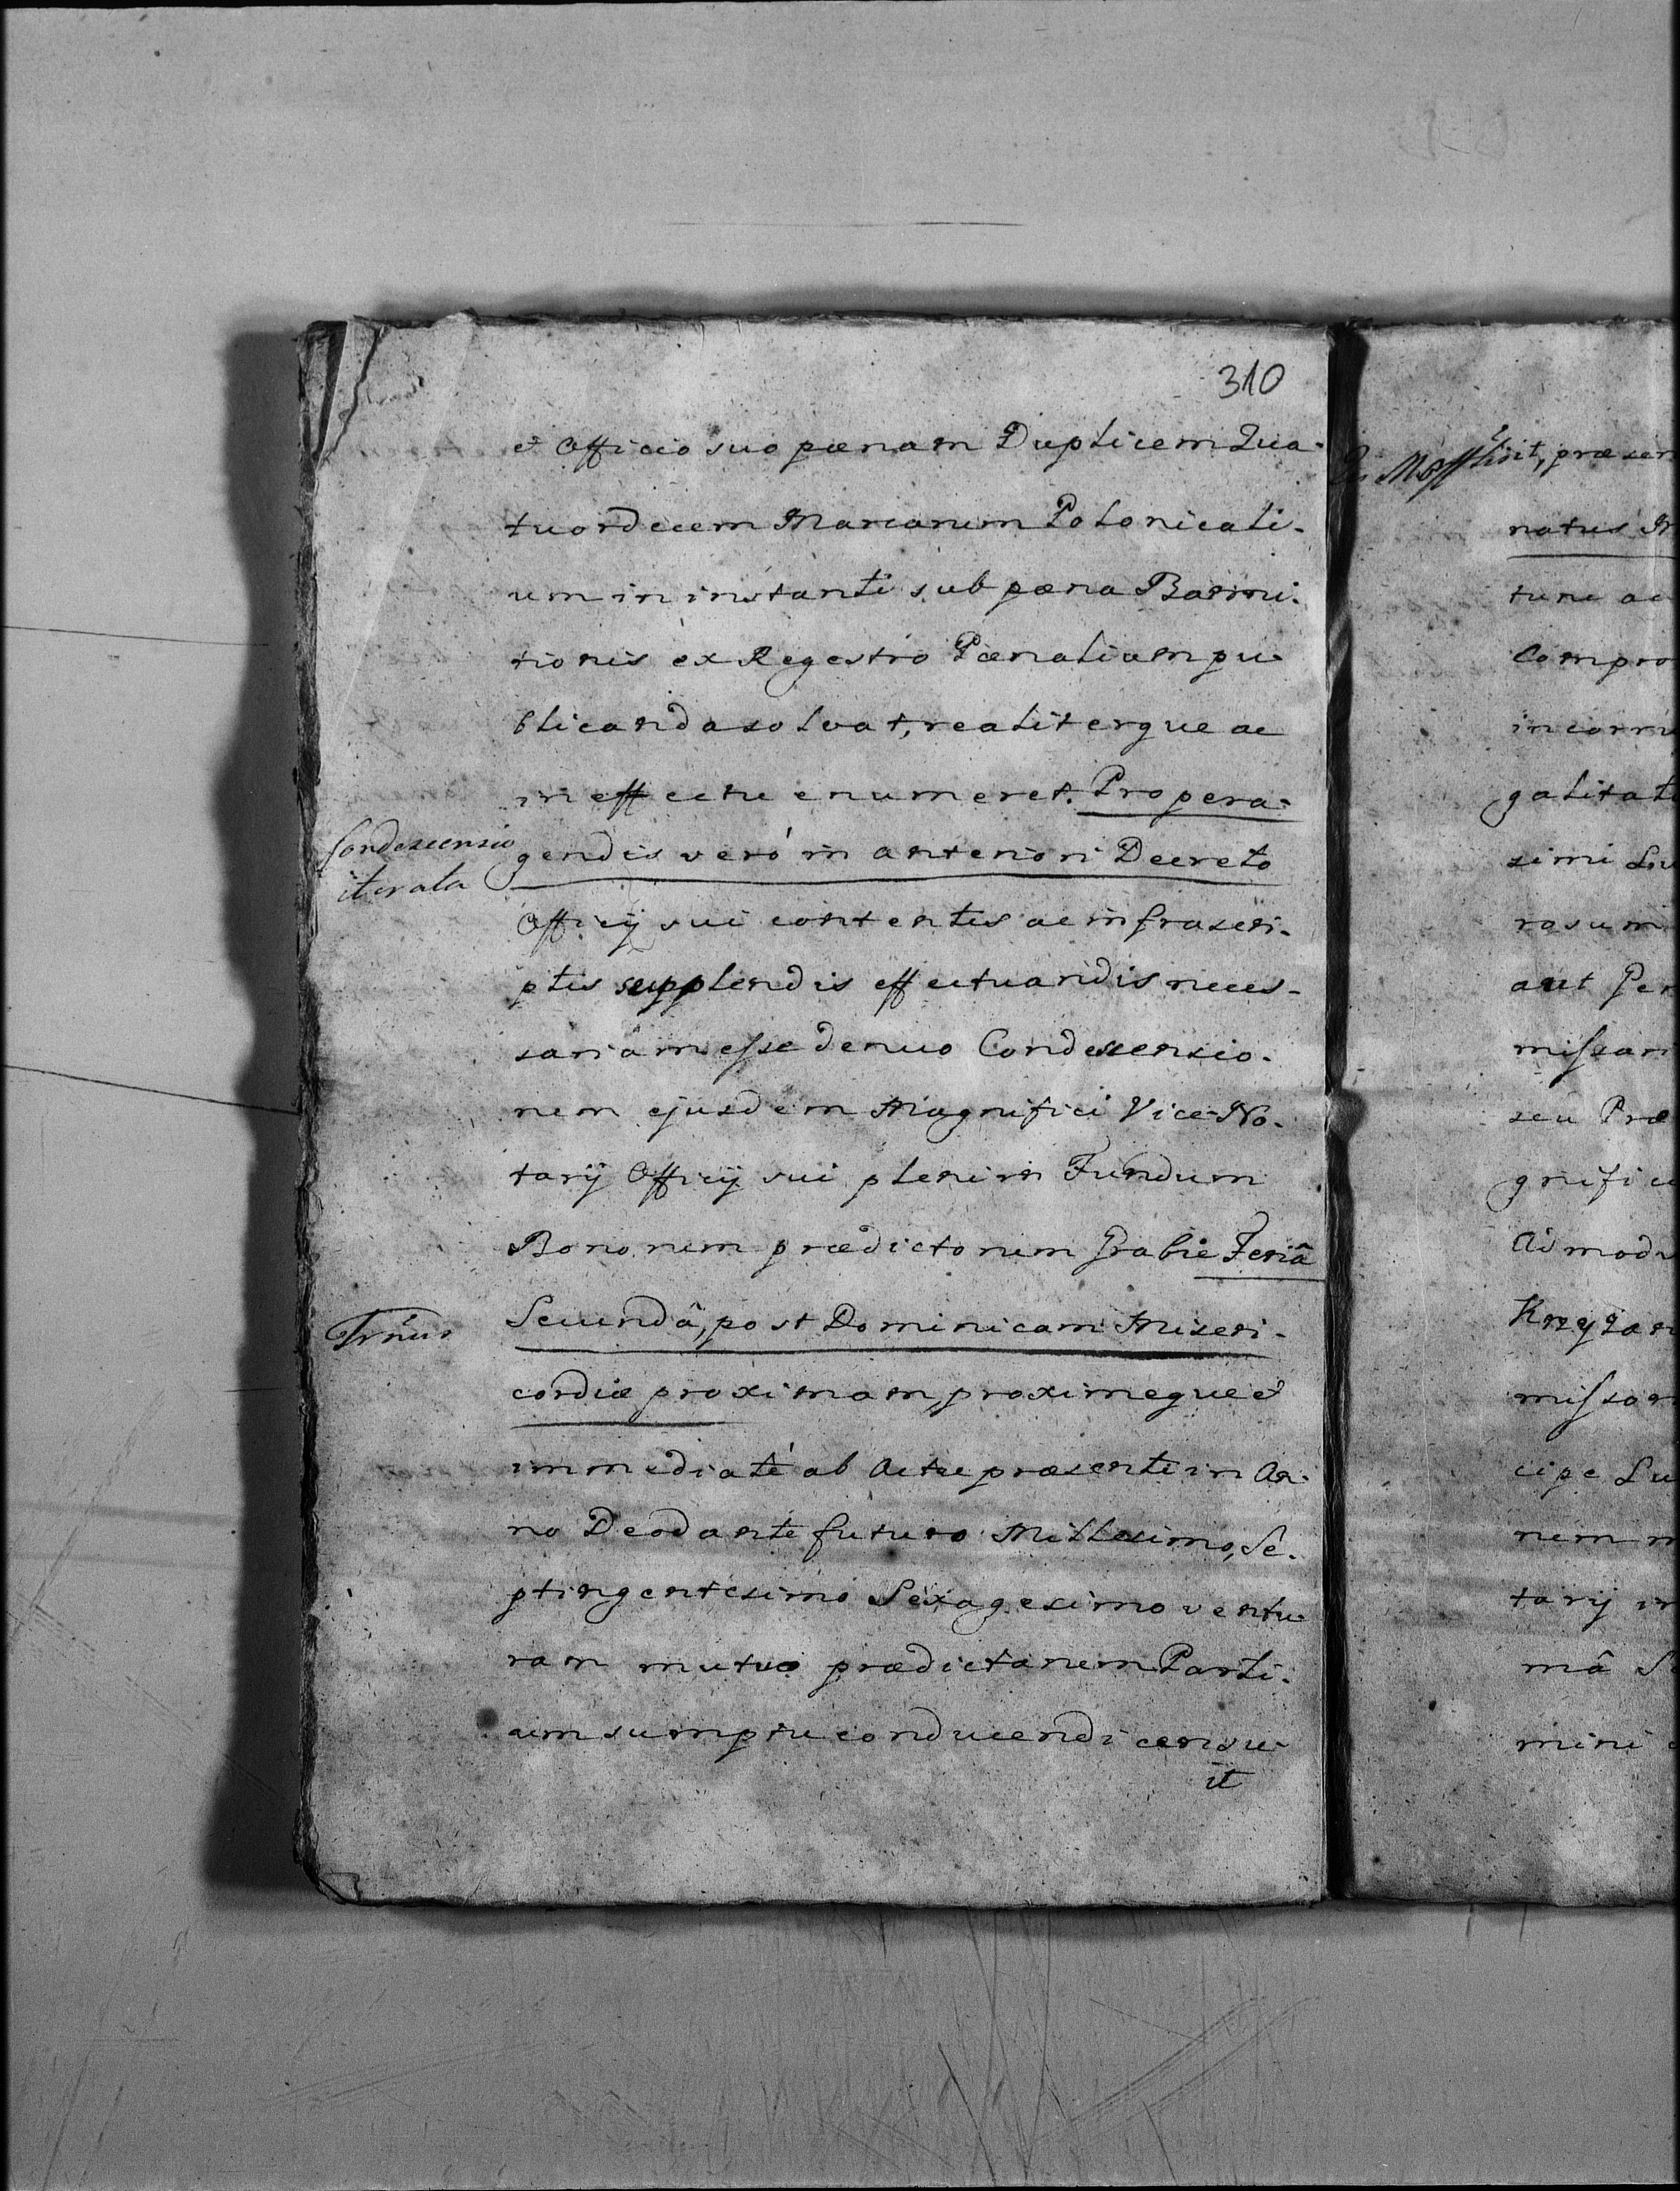 310
et Officio suo pœnam Duplicem Qua-
tuordecem Marcarum Polonicali-
um in instanti sub pœna Banni-
tionis ex Regestro Pœnalium pu-
blicanda solvat, realiterque ac
in effectu enumeret. Pro pera-
Condescensio
iterata
gendis veró in anteriori Decreto
Officij sui contentis ac infrascri-
ptis supplendis effectuandis neces-
sariam esse denuo Condescensio-
nem ejusdem Magnifici Vice-No-
tarij Officij sui pleni in Fundum
Bonorum prædictorum Grabie Feriâ
Trnus
Secundâ, post Dominicam Miseri-
cordiæ proximam, proximeque et
immediaté ab Actu præsenti in An-
no Deo dante futuro Millesimo, Se-
ptingentesimo Sexagesimo ventu-
ram mutuo prædictarum Parti-
um sumptu conducendi censu-
it
præsen
natus
tunc ac
Compro
incorru
galitat
simi
rosum
aut Per
missar
seu Præ
gnific
Admod
Krzyżan
missar
cipe
nem
tarij in
mâ
mini